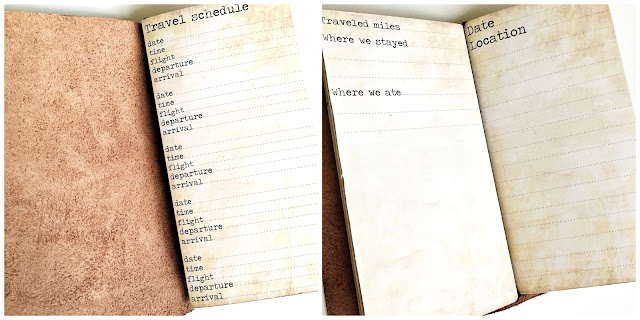 Travel schedule
date
time
flight
departure
arrival
date
time
flight
departure
arrival
date
time
flight
departure
arrival
date
time
flight
departure
arrival
date
time
flight
departure
arrival
Traveled miles
Where we stayed
Where we ate
Date
Location